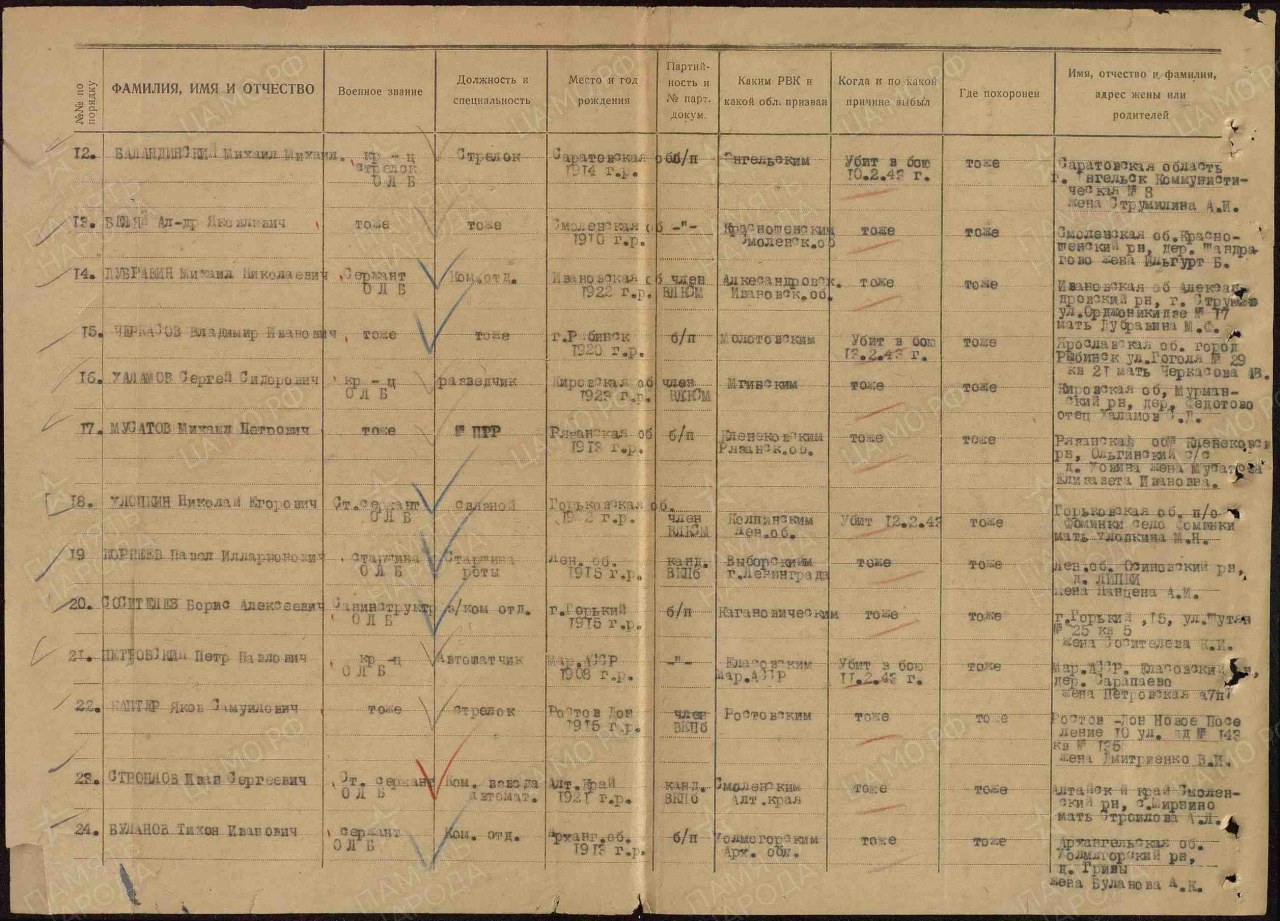 №№ по порядку
ФАМИЛИЯ, ИМЯ И ОТЧЕСТВО
Военное звание
Должность и специальность
Место и год рождения
Партийность и № парт. докум.
Каким РВК и какой обл. призван
Когда и по какой причине выбыл
Где похоронен
Имя, отчество и фамилия, адрес жены или родителей
12. БАЛАНДИНСКИЙ Михаил Михаил. кр-ц Стрелок Саратовская об б/п Энгельским Убит в бою тоже Саратовская область
стрелок 1914 г.р. 10.2.43 г. г. Энгельск Коммунисти-
О Л Б ческая № 8
жена Струмилина А.И.
13. БЕЛЫЙ Ал-др Яковлевич тоже тоже Смоленская об -"- Красношенским тоже тоже Смоленская об.Красно-
1910 г.р. Смоленск.об шенский рн, дер.
жена Б.
14. ДУБРАВИН Михаил Николаевич Сержант Ком.отд. Ивановская об член Алкесандровск. тоже тоже Ивановская об Алексан-
О Л Б 1922 г.р. ВЛКСМ Ивановск.об. дровский рн, г.
ул.Орджоникидзе № 17
мать Дубравина М.Ф.
15. ЧЕРКАСОВ Владимир Иванович тоже тоже г.Рыбинск б/п Молотовским Убит в бою тоже Ярославская об. город
1920 г.р. 12.2.43 г. Рыбинск ул.Гоголя № 29
кв 21 мать Черкасова
16. ХАЛАМОВ Сергей Сидорович кр-ц разведчик Кировская об член Мгинским тоже тоже Кировская об, Мурман-
О Л Б 1923 г.р. ВЛКСМ ский рн, дер. Федотово
отец Халамов С.Д.
17. МУСАТОВ Михаил Петрович тоже № ПТР Рязанская об б/п Клепековским тоже тоже Рязанская об
1913 г.р. Рязанск.об. рн, Ольгинский с/с
д. жена Мусатова
Елизавета Ивановна.
18. ХЛОПКИН Николай Егорович Ст.сержант связной Горьковская об. Колпинским Убит 12.2.43 тоже Горьковская об. п/о
О Л Б г.р. член Лен.об. Фоминки село Фоминки
ВЛКСМ мать Хлопкина М.Н.
19 КОРНЕЕВ Павел Илларионович старшина Старшина Лен. об. канд. Выборгским тоже тоже Лен.об. Осиновский рн,
О Л Б роты 1915 г.р. ВКПб г.Ленинграда д. ЛИПКИ
жена Панцена А.И.
20. СОСИТЕЛЕВ Борис Алексеевич Санинструктр з/ком отд. г.Горький б/п Кагановическим тоже тоже г.Горький ,15,
О Л Б 1915 г.р. № 25 кв 5
жена Соситилева К.И.
21. ПЕТРОВСКИЙ Петр Павлович кр-ц Автоматчик Мар.АССР -"- Еласовским Убит в бою тоже Мар.АССР. Еласовский
О Л Б 1908 г.р. Мар.АССР 11.2.43 г. дер. Сарапаево
жена Петровская
22. КАПТЕР Яков Самуилович тоже стрелок Ростов Дон член Ростовским тоже тоже Ростов -Дон Новое Посе
1915 г.р. ВКПб ление 10 ул. № 143
кв № 135
жена Дмитриенко В.И.
23. СТРОИЛОВ Иван Сергеевич Ст. сержант Ком. взвода Алт.Край канд. Смоленским тоже тоже Алтайский край Смолен-
О Л Б автомат. 1921 г.р. ВКПб Алт.края ский рн, с.
мать Строилова А.Л.
24. БУЛАНОВ Тихон Иванович сержант Ком. отд. Арханг.об. б/п Холмогорским тоже тоже Архангельская об.
О Л Б 1913 г.р. Арх. обл. Холмогорский рн,
д. Гривы
жена Буланова А.К.